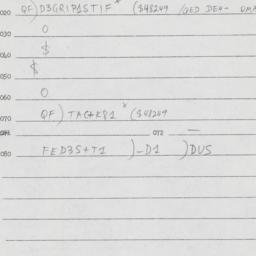 020 QF) D3GRIP1STIF * ($48249 /QED DEN-
030 O
040 $
050 $
060 O
070 QF) TAC+K81 * ($48249
071 072 —
080 FED3S+T1 )-D1 )DUS